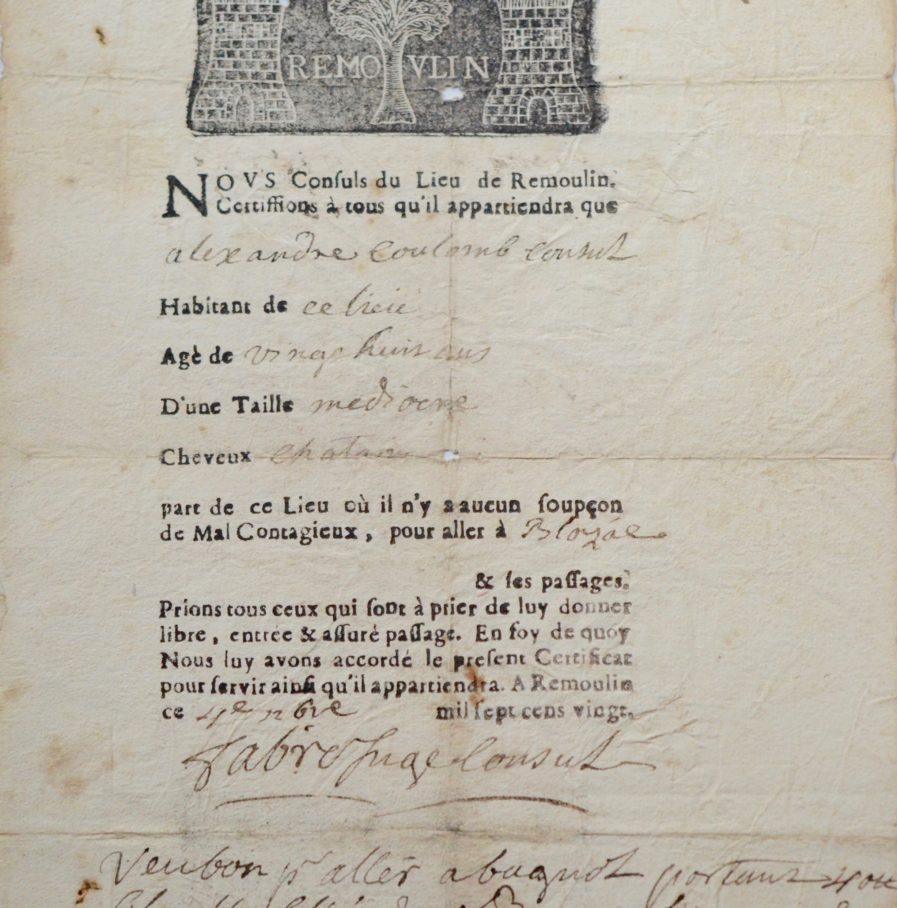 REMOVLIN
NOVS Conſuls du Lieu de Remoulin.
Certiffions à tous qu'il appartiendra que
alexandre Coulomb Consul
Habitant de ce lieu
Agé de vingt huit ans
D'une Taille mediocre
Cheveux chatan
part de ce Lieu où il n'y a aucun ſoupçon
de Mal Contagieux, pour aller à
& ſes paſſages.
Prions tous ceux qui ſont à prier de luy donner
libre, entrée & aſſuré paſſage. En foy de quoy
Nous luy avons accordé le preſent Certificat
pour ſervir ainſi qu'il appartiendra. A Remoulin
ce 4e mil ſept cens vingt.
Consul
Veu bon pr aller a portant